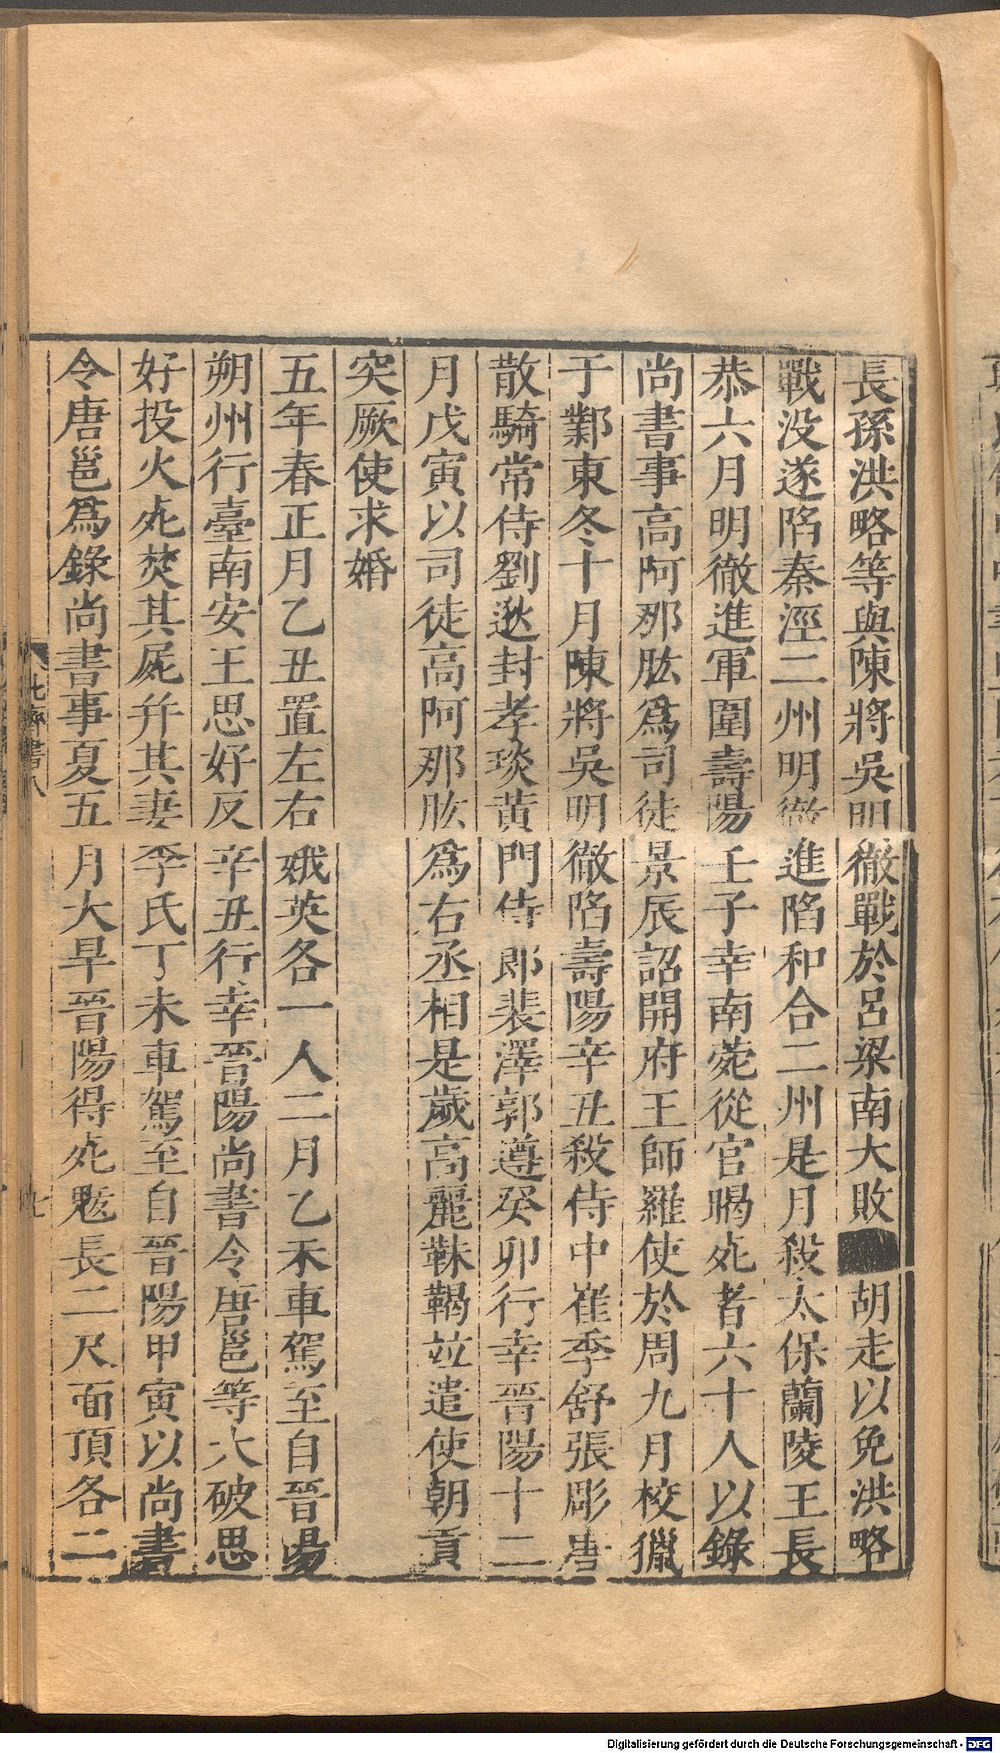 長孫洪略等與陳將吳明徹戰於呂梁南大敗胡走以免洪略
戰没遂陷秦涇二州明徹進陷和合二州是月殺太保蘭陵王長
恭六月明徹進軍圍壽陽壬子幸南菀從官暍死者六十人以錄
尚書事高阿那肱爲司徒景辰詔開府王師羅使於周九月校獵
于鄴東冬十月陳將吳明徹陷壽陽辛丑殺侍中崔季舒張彫唐
散騎常侍劉逖封孝琰黄門侍郎裴澤郭遵癸卯行幸晉陽十二
月戊寅以司徒高阿那肱爲右丞相是歲高麗靺鞨竝遣使朝貢
突厥使求婚
五年春正月乙丑置左右娥英各一人二月乙未車駕至自晉陽
朔州行臺南安王思好反辛丑行幸晉陽尚書令唐邕等大破思
好投火死焚其屍并其妻李氏丁未車駕至自晉陽甲寅以尚書
令唐邕爲錄尚書事夏五月大旱晉陽得死魃長二尺面頂各二
北齊書八
七
Digitalisierung gefördert durch die Deutsche Forschungsgemeinschaft - DFG